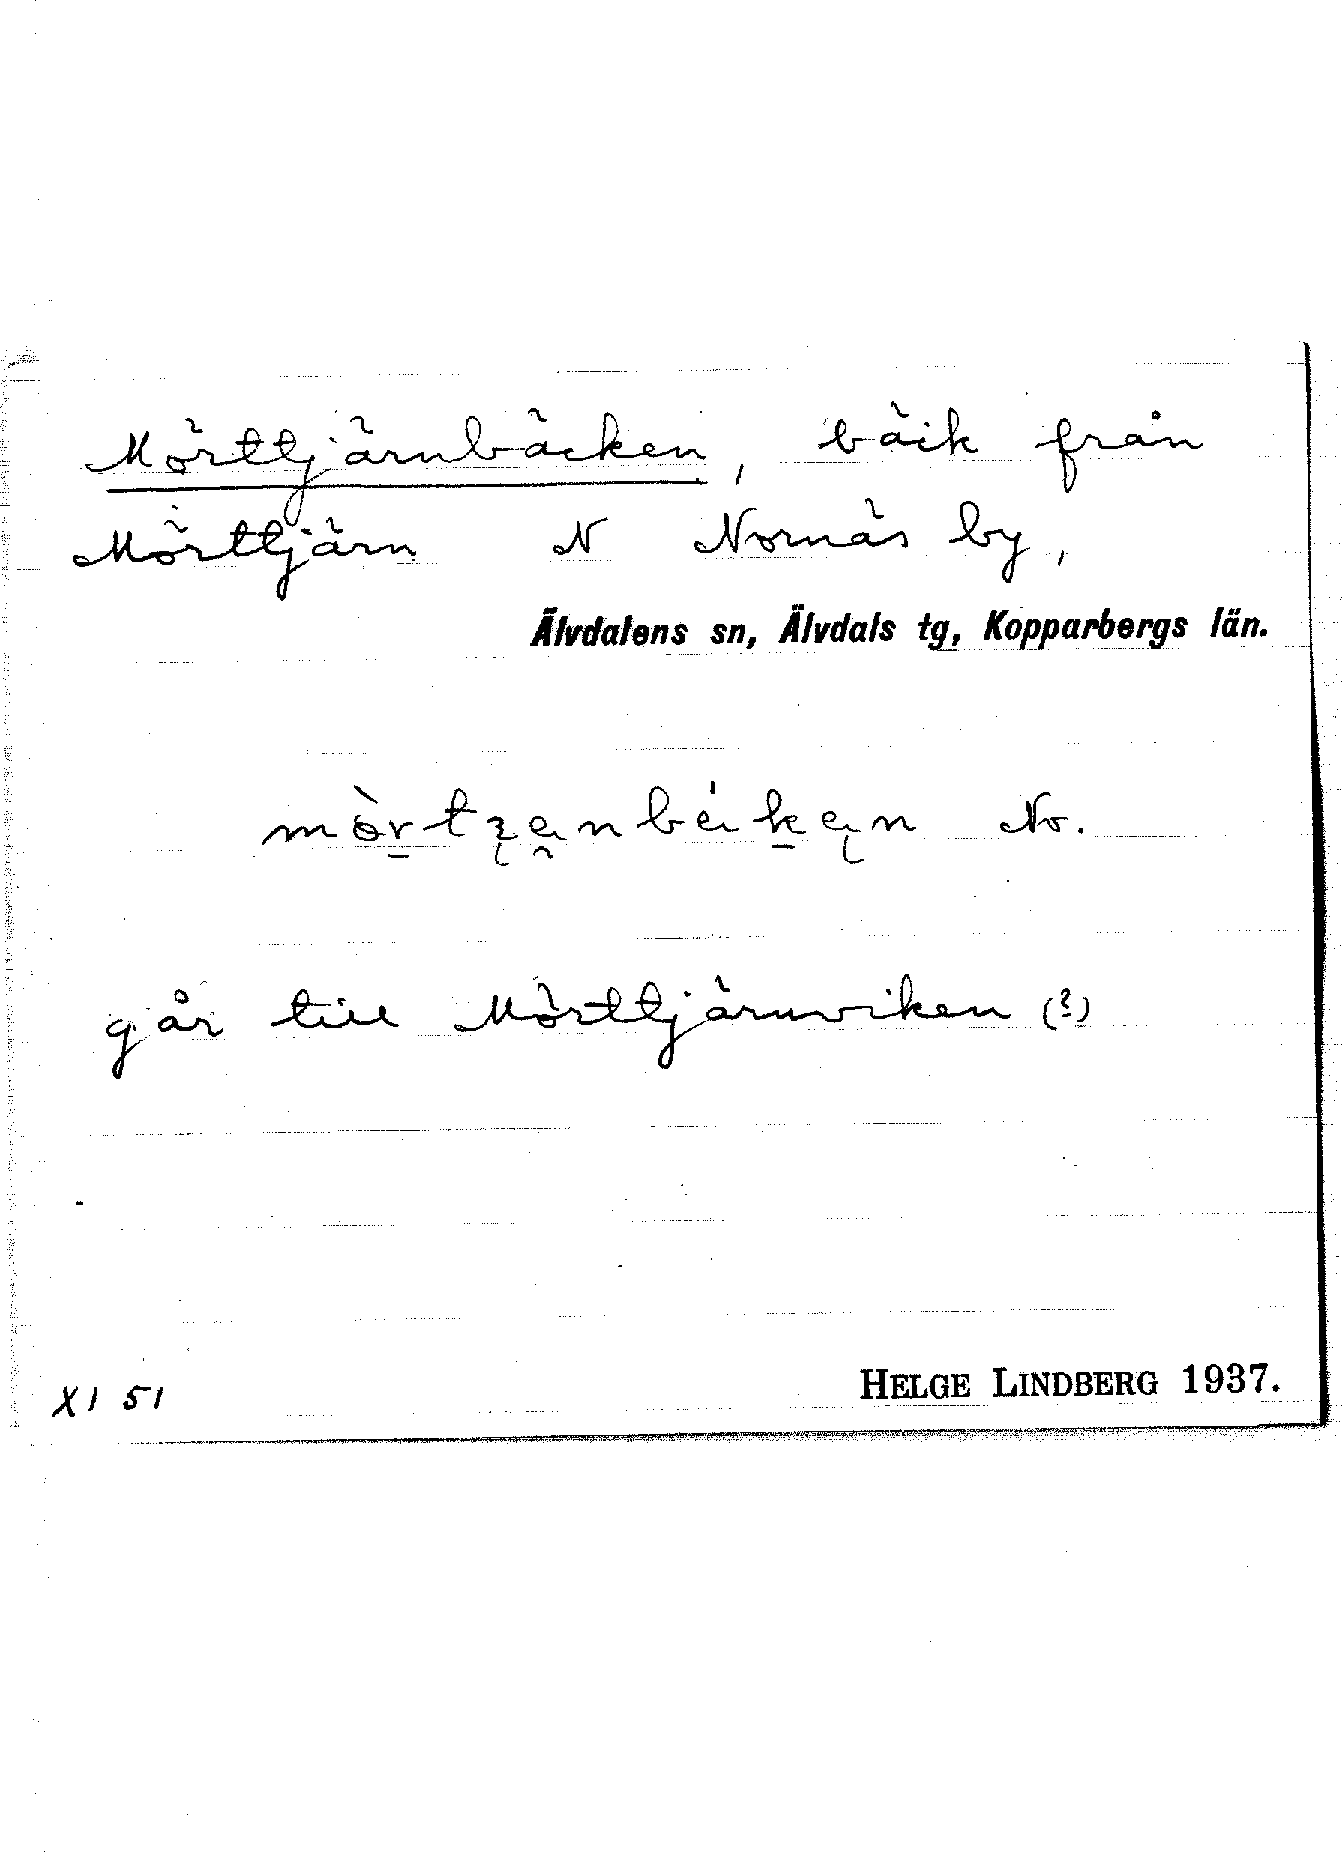 Mörttjärnbäcken, bäck från
Mörttjärn N Nornäs by,
Älvdalens sn, Älvdals tg, Kopparbergs län.
No.
går till Mörttjärnviken (?)
XI 51 HELGE LINDBERG 1937.